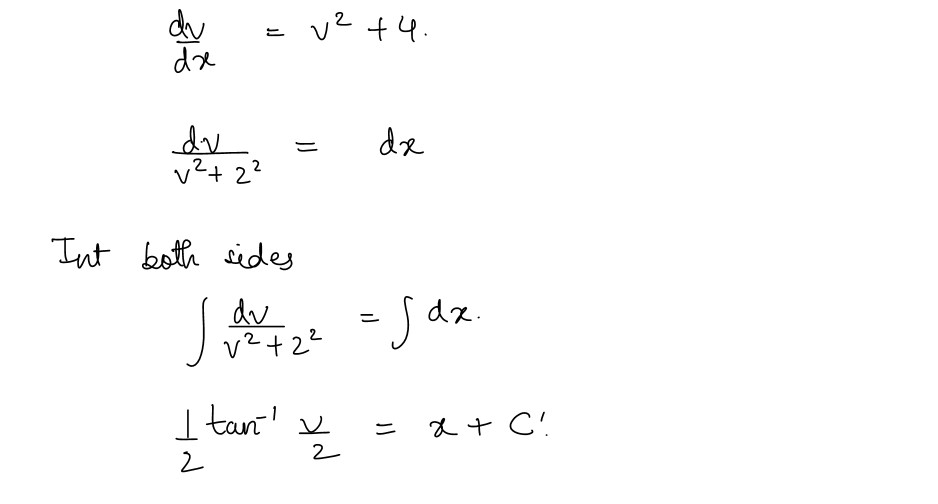 dv/dx = v² + 4.
dv/(v² + 2²) = dx
Int both sides
∫ dv/(v² + 2²) = ∫ dx.
1/2 tan⁻¹ v/2 = x + C'.